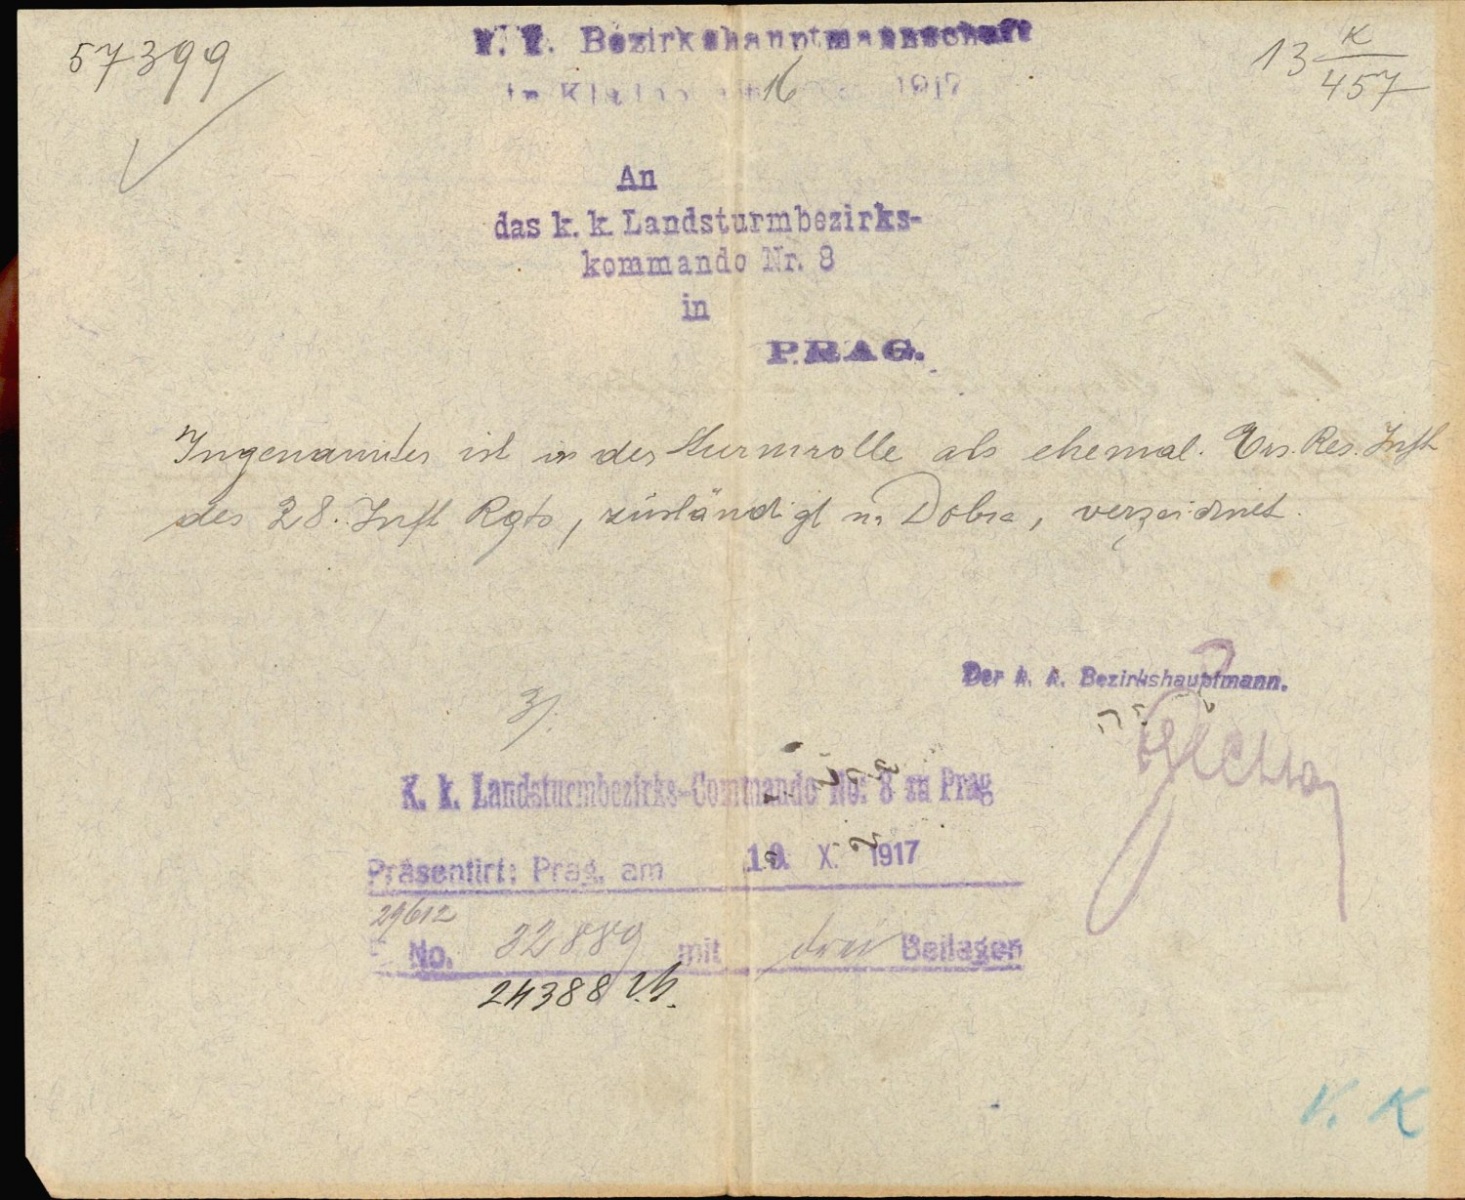 57399
K. k. Bezirkshauptmannschaft
in Kladno am 16 1917
13 K/457
An
das k. k. Landsturmbezirks-
kommando Nr. 8
in
PRAG.
Ingenannter ist in der Sturmrolle als ehemal. Ers. Res. Inft
des 28. Inft Rgts, zuständigt n. Dobrá, verzeichnet.
Der k. k. Bezirkshauptmann.
3/.
K. k. Landsturmbezirks-Commando No: 8 zu Prag
Präsentirt: Prag, am 19. X. 1917
29612
No. 32889 mit drei Beilagen
24388
V. K